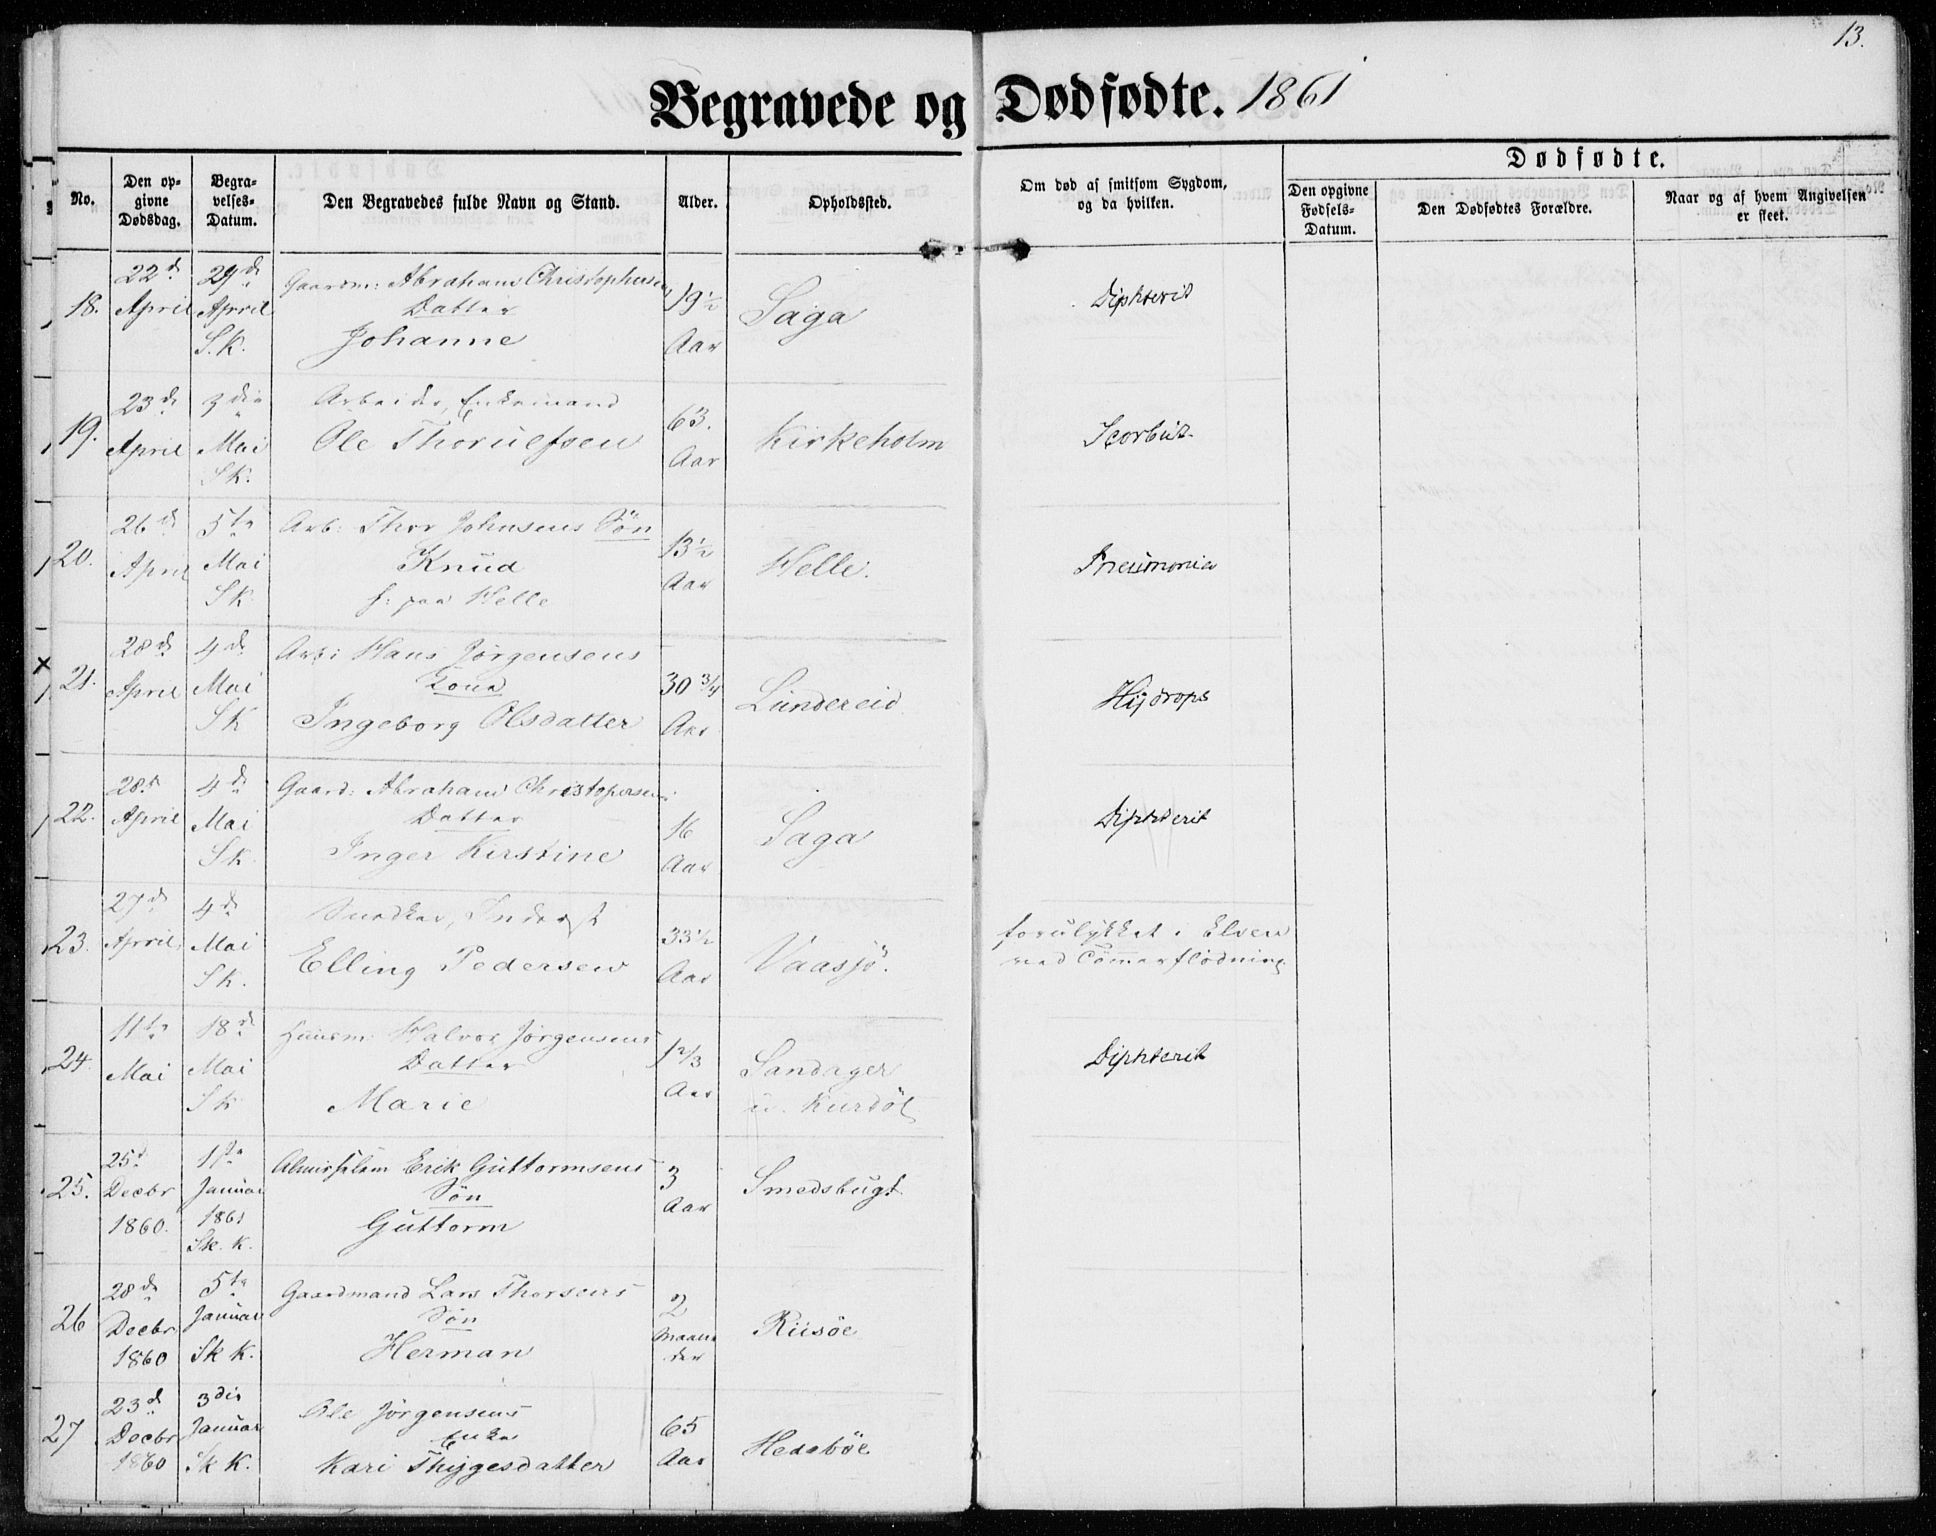 13.
Begravede og Dødfødte. 1861
No.
Den op-
givne
Dødsdag.
Begra-
velses-
Datum.
Den Begravedes fulde Navn og Stand.
Alder.
Opholdssted.
Om død af smitsom Sygdom,
og da hvilken.
Dødfødte.
Den opgivne
Fødsels-
Datum.
Den Dødfødtes Forældre.
Naar og af hvem Angivelsen
er skeet.
18.
22d
April
29d
April
S.K.
Gaardm: Abrahams Christophersen
Datter
Johanne
19½
Aar
Saga
Diphterit
19.
23d
April
3die
Mai
SK.
Arbeider, Enkemand
Ole Thorulfsen
63.
Aar
Kirkeholm
Scorbut
20.
26d
April
5te
Mai
SK
Arb: Thor Johnsens Søn
Knud
f: paa Helle
13½
Aar
Helle.
Pneumonia
21.
28d
April
4d
Mai
SK
Arb: Hans Jørgensens
Kone
Ingeborg Olsdatter
30 3/4
Aar
Lundereid
Hydrops
22.
28d
April
4d
Mai
SK
Gaard: Abrahams Christopersens
Datter
Inger Kirstine
16
Aar
Saga
Diphterit
23.
27d
April
4d
Mai
SK.
Snedker, Inderst
Elling Pedersen
33½
Aar
Vaasjø.
forulykket i Elven
ved Tømmerflødning
24.
11te
Mai
18d
Mai
SK
Huusm. Halvor Jørgensens
Datter
Marie
1 2/3
Aar
Sandager
u. Kurdøl
Diphterit
25.
25d
Decbr
1860.
1ste
Januar
1861
Sk. K.
Almisselem Erik Guttormsens
Søn
Guttorm
3
Aar
Smedsbugt
26
28d
Decbr
1860
5te
Januar
Sk K.
Gaardmand Lars Thorsens
Søn
Herman
2
Maane
der
Riisøe
27
23d
Decbr
1860
3die
Januar
Sk K.
Ole Jørgensens
Enke
Kari Thygesdatter
65
Aar
Hedebøe